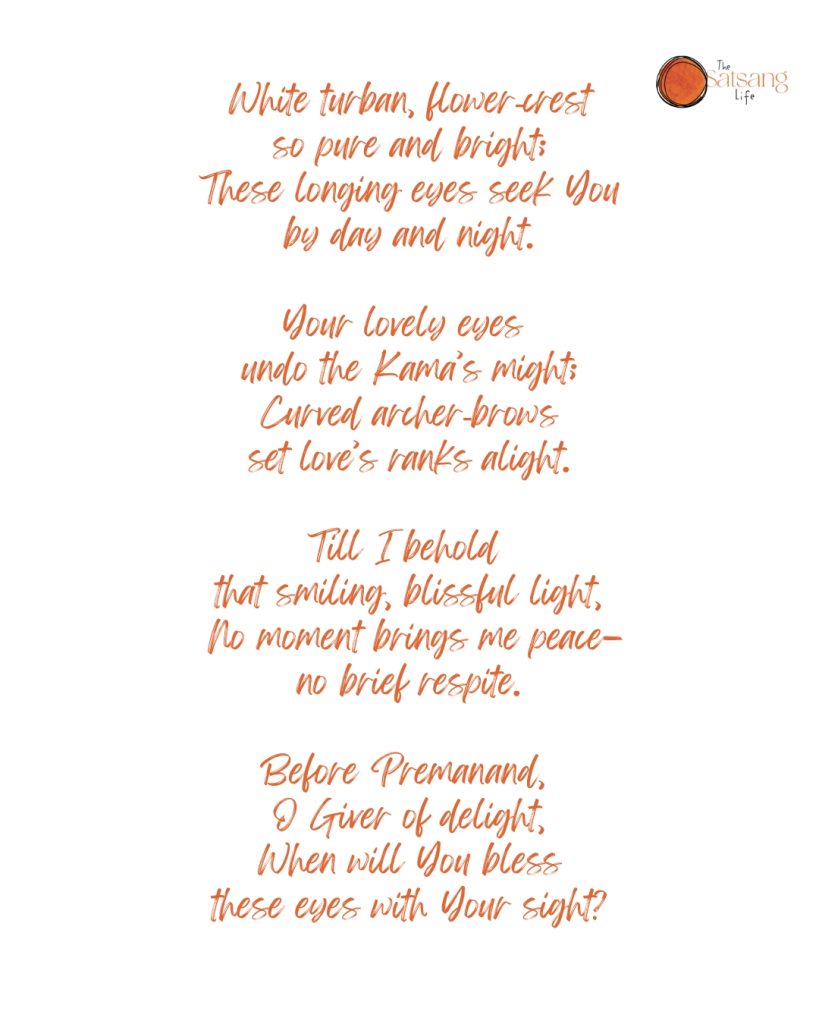 The
Satsang
Life
White turban, flower-crest
so pure and bright;
These longing eyes seek You
by day and night.
Your lovely eyes
undo the Kama's might;
Curved archer-brows
set love's ranks alight.
Till I behold
that smiling, blissful light,
No moment brings me peace–
no brief respite.
Before Premanand,
O Giver of delight,
When will You bless
these eyes with Your sight?